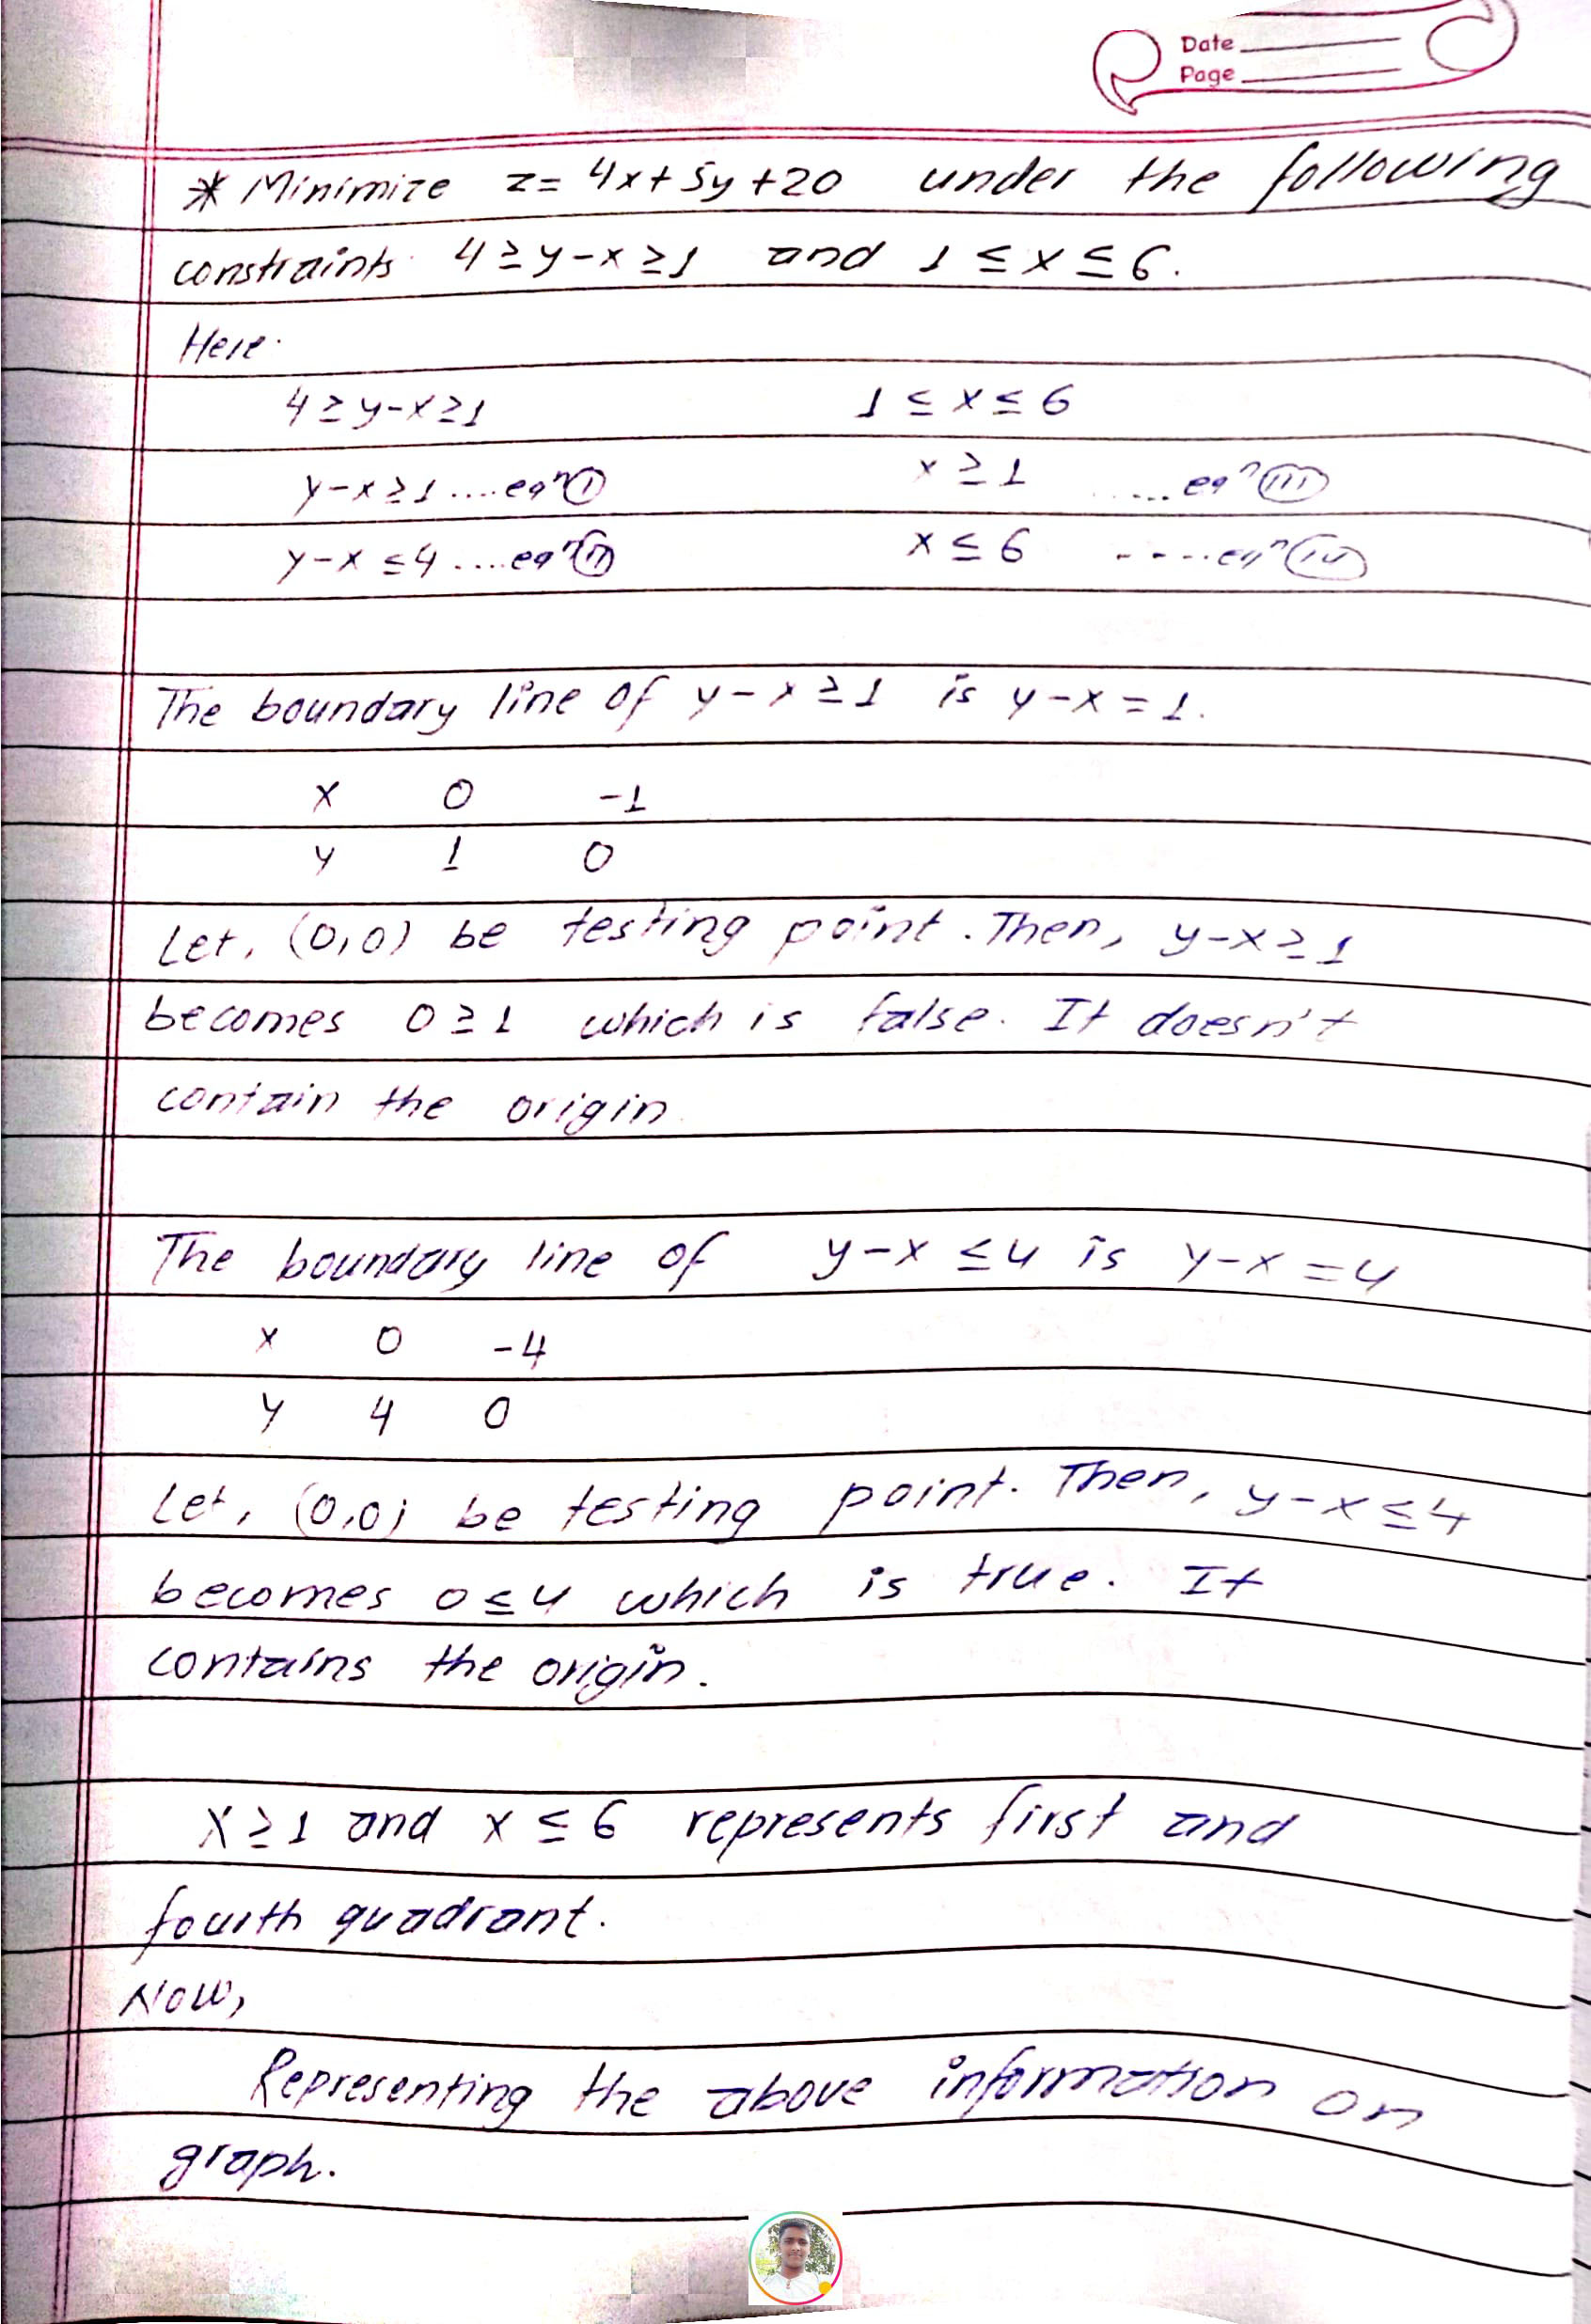 Date
Page
* Minimize z= 4x+5y+20 under the following
constraints 4≥y-x≥1 and 1≤x≤6.
Here
4≥y-x≥1 1≤x≤6
y-x≥1 ....eqⁿ(i) x≥1 ......eqⁿ(iii)
y-x≤4 ....eqⁿ(ii) x≤6 .....eqⁿ(iv)
The boundary line of y-x≥1 is y-x=1.
x 0 -1
y 1 0
Let, (0,0) be testing point. Then, y-x≥1
becomes 0≥1 which is false. It doesn't
contain the origin
The boundary line of y-x≤4 is y-x=4
x 0 -4
y 4 0
Let, (0,0) be testing point. Then, y-x≤4
becomes 0≤4 which is true. It
contains the origin.
x≥1 and x≤6 represents first and
fourth quadrant.
Now,
Representing the above information on
graph.